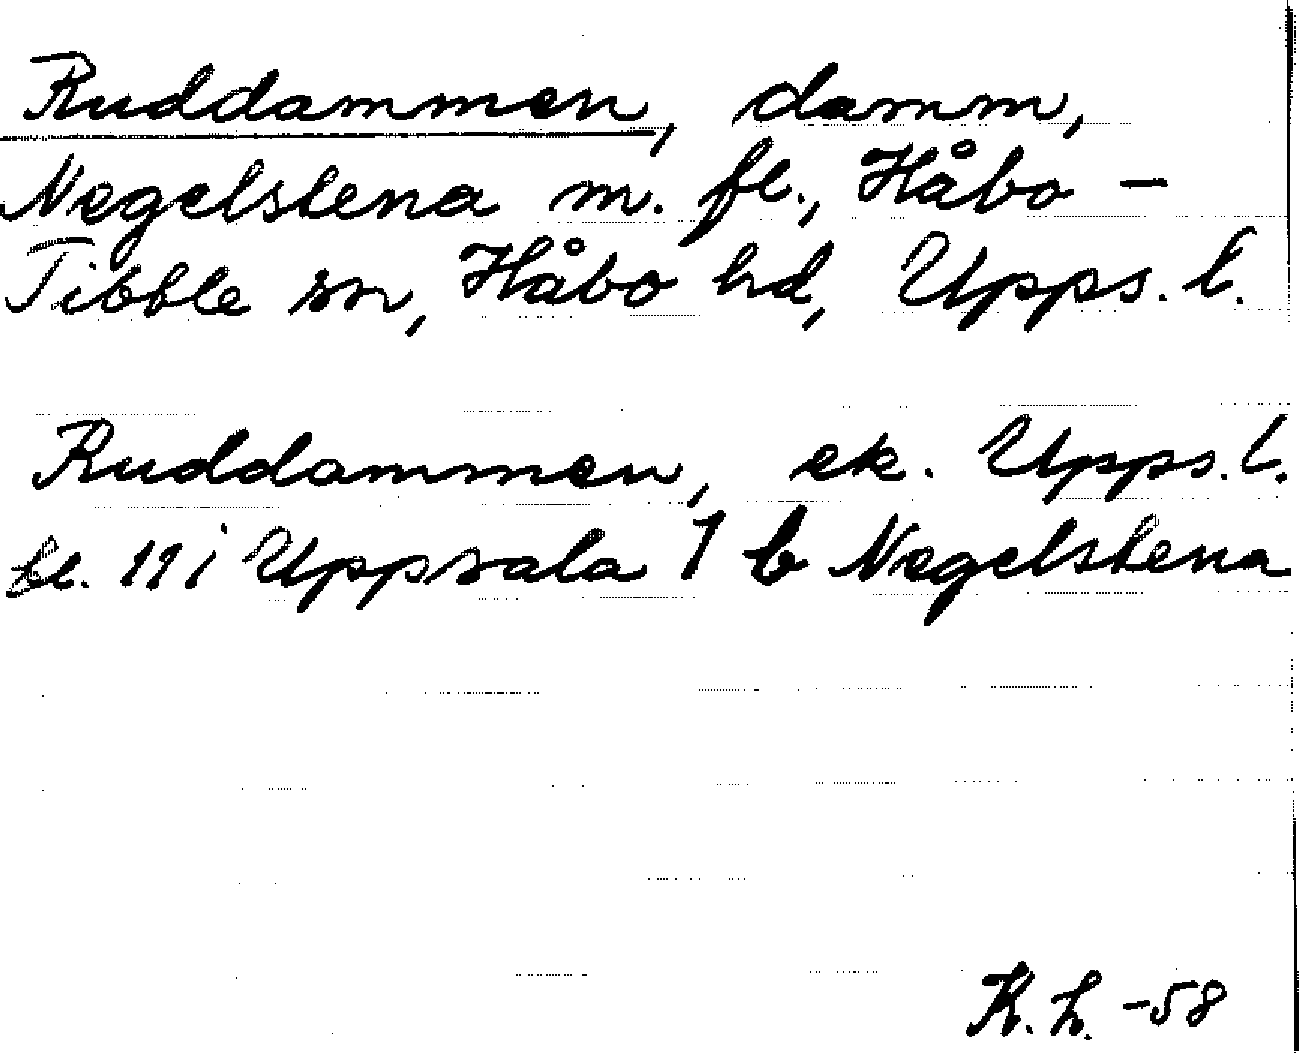 Ruddammen, damm,
Negelstena m. fl., Håbo -
Tibble sn, Håbo hd, Upps. l.
Ruddammen, ek. Upps. l.
bl. 11 i Uppsala 1 b Negelstena
K. L. -58